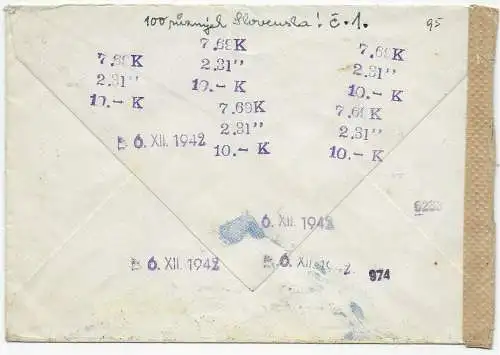 100 původných Slovenska! č. 1.
95
7.69K
2.31"
10.- K
7.69K
2.31"
10.- K
7.69K
2.31"
10.- K
7.69K
2.31"
10.- K
7.69K
2.31"
10.- K
6. XII. 1942
6. XII. 1942
6. XII. 1942
6. XII. 1942
974